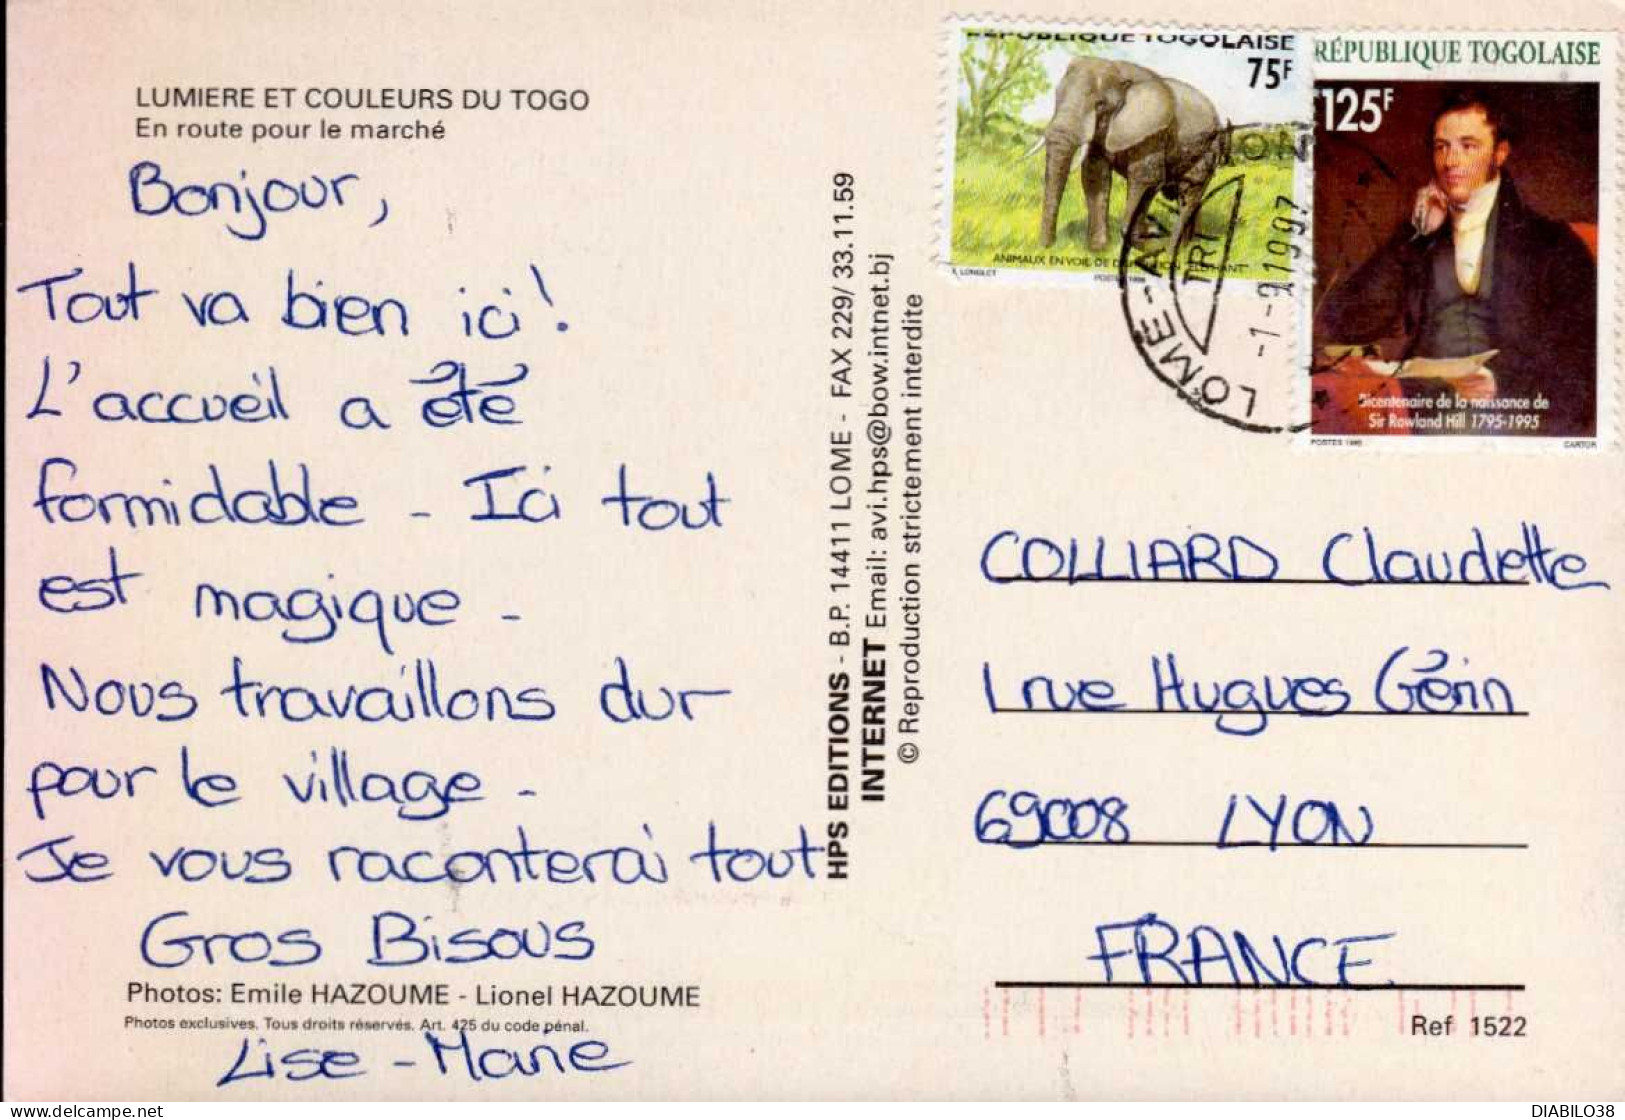 LUMIERE ET COULEURS DU TOGO
En route pour le marché
Bonjour,
Tout va bien ici !
L'accueil a été
formidable - Ici tout
est magique -
Nous travaillons dur
pour le village -
Je vous raconterai tout
Gros Bisous
Photos: Emile HAZOUME - Lionel HAZOUME
Photos exclusives. Tous droits réservés. Art. 425 du code pénal.
Lise - Marie
HPS EDITIONS - B.P. 14411 LOME - FAX 229/ 33.11.59
INTERNET Email: avi.hps@bow.intnet.bj
© Reproduction strictement interdite
RÉPUBLIQUE TOGOLAISE
75F
ANIMAUX EN VOIE DE
LONGLET
RÉPUBLIQUE TOGOLAISE
125F
Bicentenaire de la naissance de
Sir Rowland Hill 1795-1995
CARTOR
LOME - AVION
TRI
-1-91997
COLLIARD Claudette
1 rue Hugues Gérin
69008 LYON
FRANCE
Ref 1522
DIABILO38